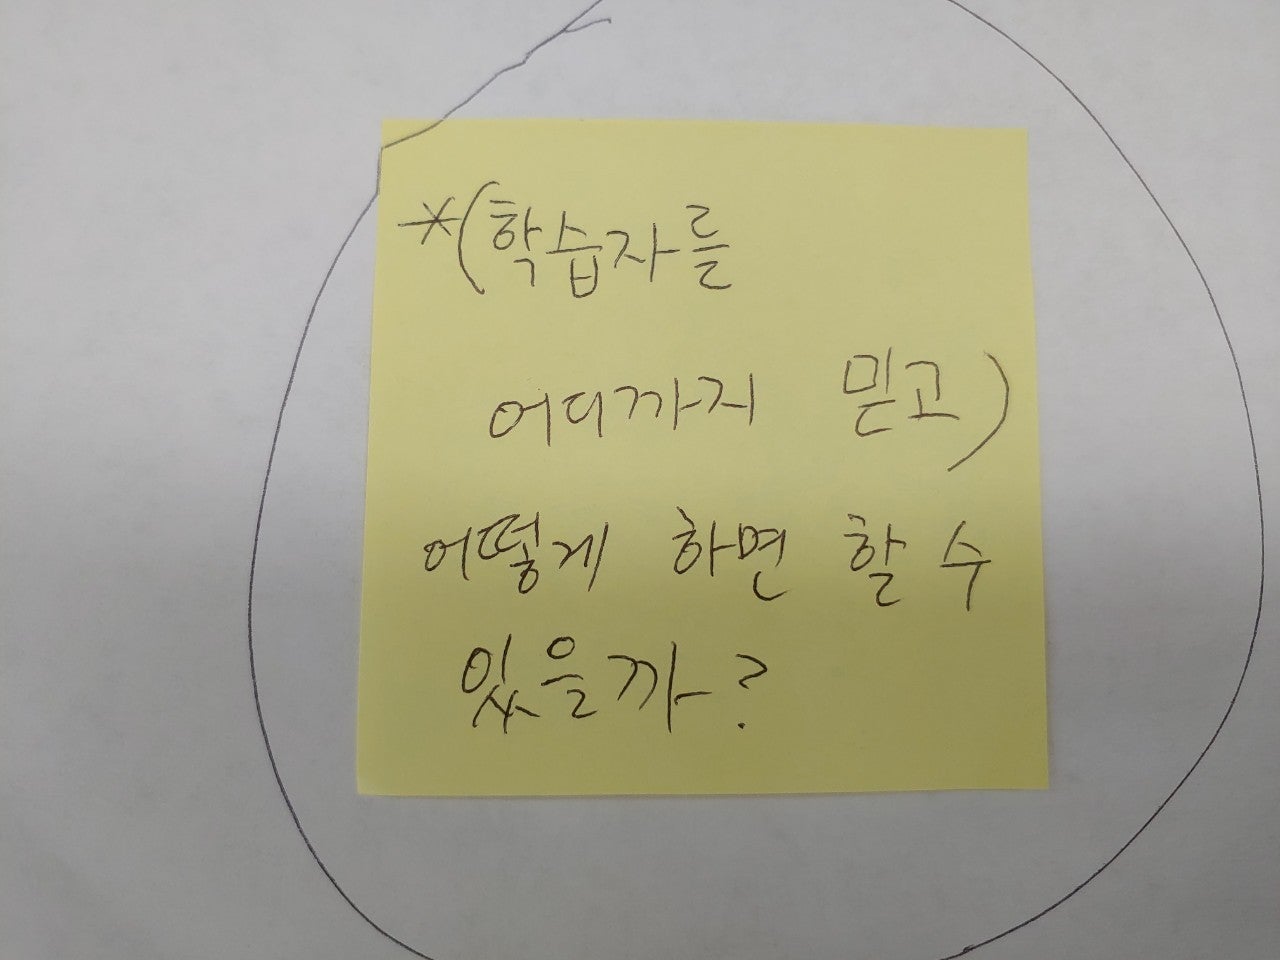 *(학습자를
어디까지 믿고)
어떻게 하면 할 수
있을까?